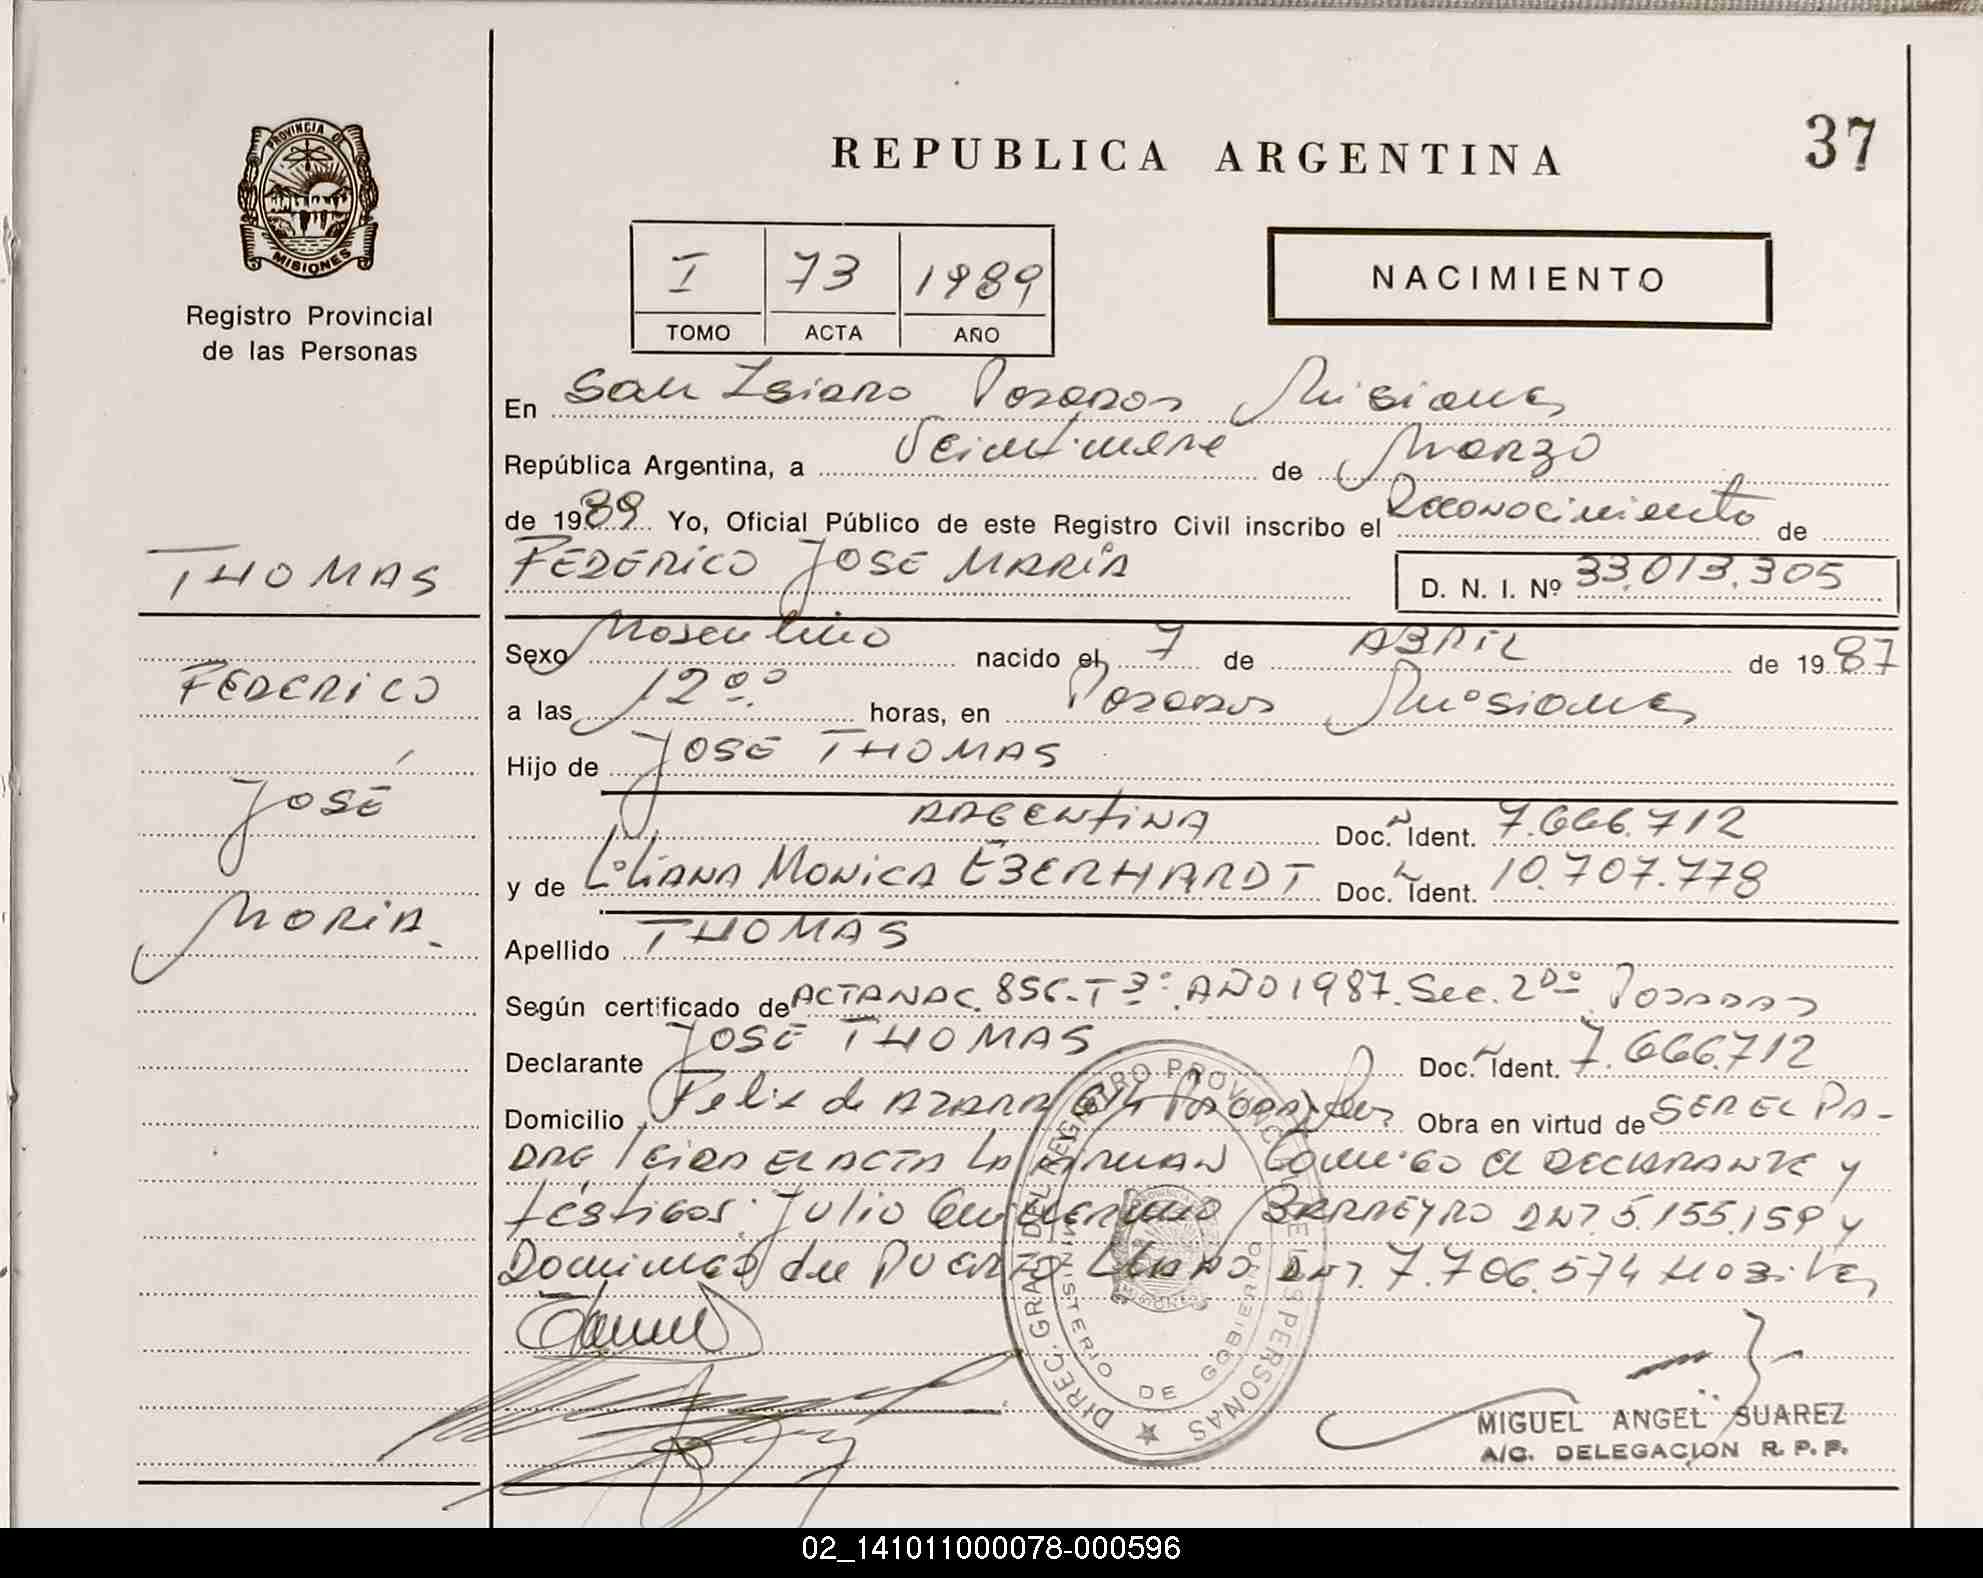 REPUBLICA ARGENTINA
37
PROVINCIA DE
MISIONES
Registro Provincial
de las Personas
I 73 1989
TOMO ACTA AÑO
NACIMIENTO
En San Isidro Posadas Misiones
República Argentina, a Veintinueve de Marzo
de 1989 Yo, Oficial Público de este Registro Civil inscribo el Reconocimiento de
THOMAS
FEDERICO JOSE MARÍA
D. N. I. Nº 33.013.305
Sexo Masculino nacido el 7 de ABRIL de 1987
FEDERICO
a las 12:00 horas, en Posadas Misiones
Hijo de JOSE THOMAS
JOSÉ
ARGENTINA Doc. Ident. 7.666.712
y de LiLiANA MONICA EBERHARDT Doc. Ident. 10.707.778
MARIA.
Apellido THOMAS
Según certificado de ACTA NAC. 856-T3º. AÑO 1987. Sec. 2da Posadas
Declarante JOSE THOMAS Doc. Ident. 7.666.712
Domicilio Felix de AZARA Posadas Obra en virtud de SER EL PA-
DRE leida EL ACTA LA FIRMAN Conmigo el DECLARANTE y
téstigos: Julio Guillermo BARREYRO 5.155.159 y
Domingo del PUERTO 7.706.574 HaBiles
DIREC. GRAN DEL REGISTRO PROVINC. DE LAS PERSONAS
MINISTERIO DE GOBIERNO
MIGUEL ANGEL SUAREZ
A/C. DELEGACION R. P. P.
02_141011000078-000596